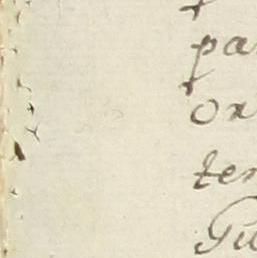 pa
on
ter
Gu